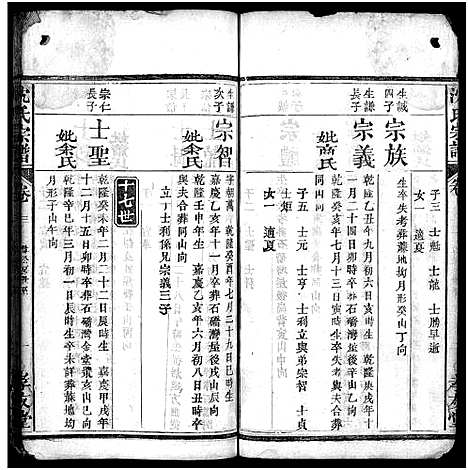 沈氏宗譜
卷
子三 士魁 士龍 士勝早逝
女一 適夏
生誠四子
宗族
生卒失考葬叢地坳月形癸山丁向
生謙長子
宗義
乾隆乙丑年九月初六日辰時生 乾隆庚戌年十
一月二十四日卯時卒葬石礄灣金堂嶺亥山巳向
妣商氏
同四
子五 士元 士亨 士利出與弟宗智 士貞
女一 適夏
生謙次子
宗智
字朝萬 乾隆癸酉年七月二十九日巳時生
嘉慶乙亥年十一月
妣余氏
乾隆壬申年生 嘉慶乙亥年六月初八日戌時卒
與夫合葬同山向
立丁士利係兄宗義三子
十七世
宗仁長子
士聖
乾隆癸未年二月二十二日辰時生 嘉慶甲戌年
十二月十五日卯時卒葬石礄灣金堂嶺亥山巳向
妣余氏
乾隆年三月初一日辰時生卒未詳葬叢地坳
月形子山午向
沈氏宗譜
卷
孝友堂